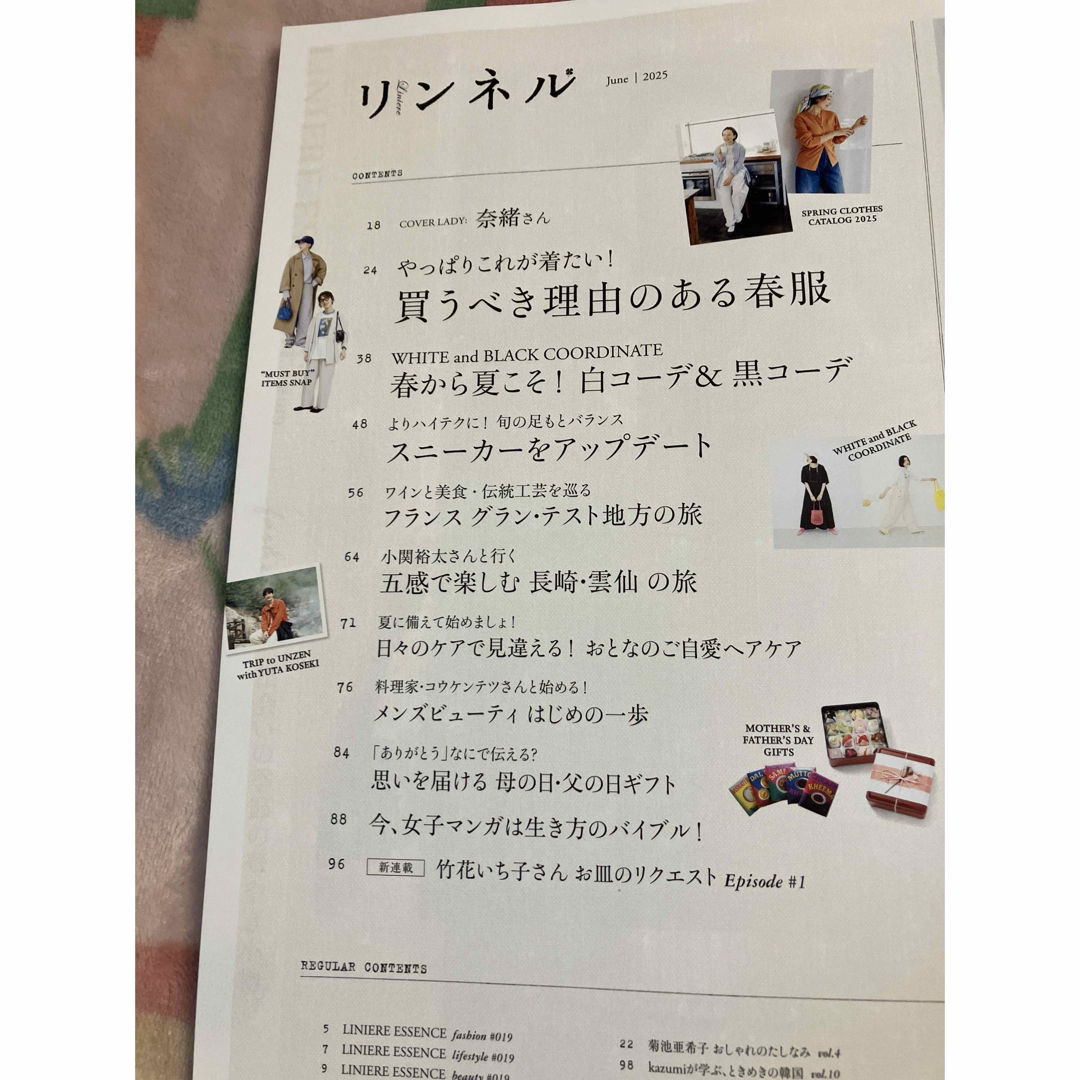 リンネル
Liniere
June | 2025
CONTENTS
SPRING CLOTHES
CATALOG 2025
18 COVER LADY: 奈緒さん
24 やっぱりこれが着たい!
買うべき理由のある春服
"MUST BUY"
ITEMS SNAP
38 WHITE and BLACK COORDINATE
春から夏こそ! 白コーデ& 黒コーデ
48 よりハイテクに! 旬の足もとバランス
スニーカーをアップデート
WHITE and BLACK
COORDINATE
56 ワインと美食・伝統工芸を巡る
フランス グラン・テスト地方の旅
64 小関裕太さんと行く
五感で楽しむ 長崎・雲仙 の旅
TRIP to UNZEN
with YUTA KOSEKI
71 夏に備えて始めましょ!
日々のケアで見違える! おとなのご自愛ヘアケア
76 料理家・コウケンテツさんと始める!
メンズビューティ はじめの一歩
MOTHER'S &
FATHER'S DAY
GIFTS
84 「ありがとう」なにで伝える?
思いを届ける 母の日・父の日ギフト
KHEEMA
88 今、女子マンガは生き方のバイブル!
96 新連載 竹花いち子さん お皿のリクエスト Episode #1
REGULAR CONTENTS
5 LINIERE ESSENCE fashion #019
7 LINIERE ESSENCE lifestyle #019
9 LINIERE ESSENCE beauty #019
22 菊池亜希子 おしゃれのたしなみ vol.4
98 kazumiが学ぶ、ときめきの韓国 vol.10